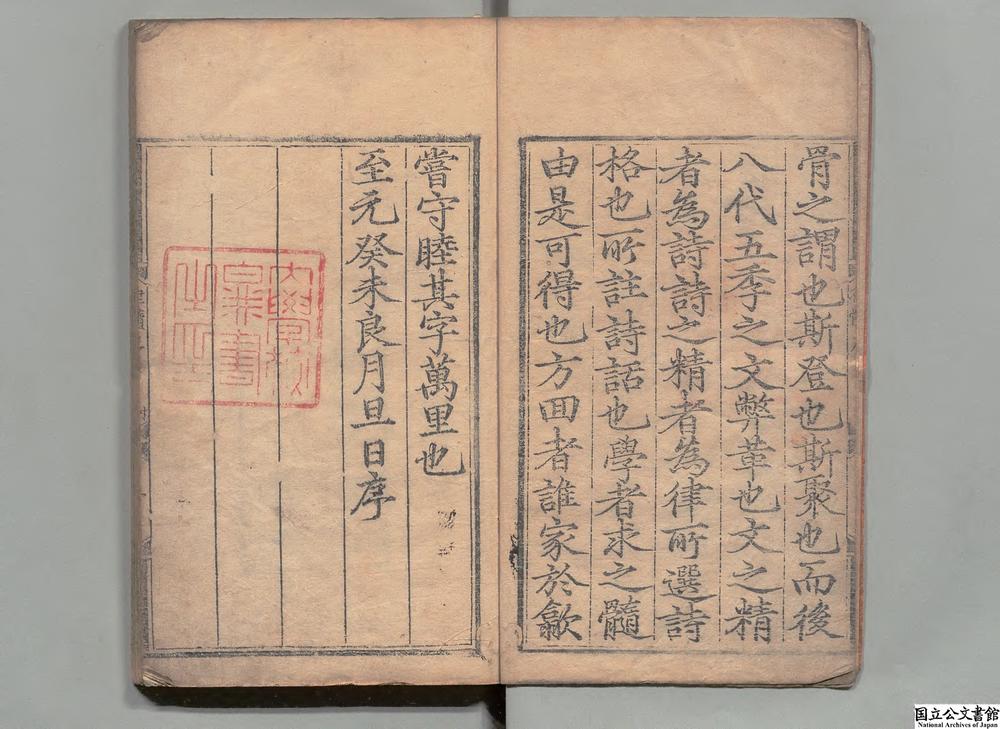 骨之謂也斯登也斯聚也而後
八代五季之文弊革也文之精
者為詩詩之精者為律所選詩
格也所註詩話也學者求之髓
由是可得也方回者誰家於歙
嘗守睦其字萬里也
至元癸未良月旦日序
国立公文書館
National Archives of Japan